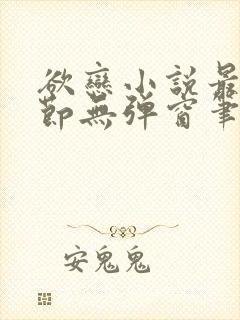 欲戀小說最
節無彈窗筆
安鬼鬼